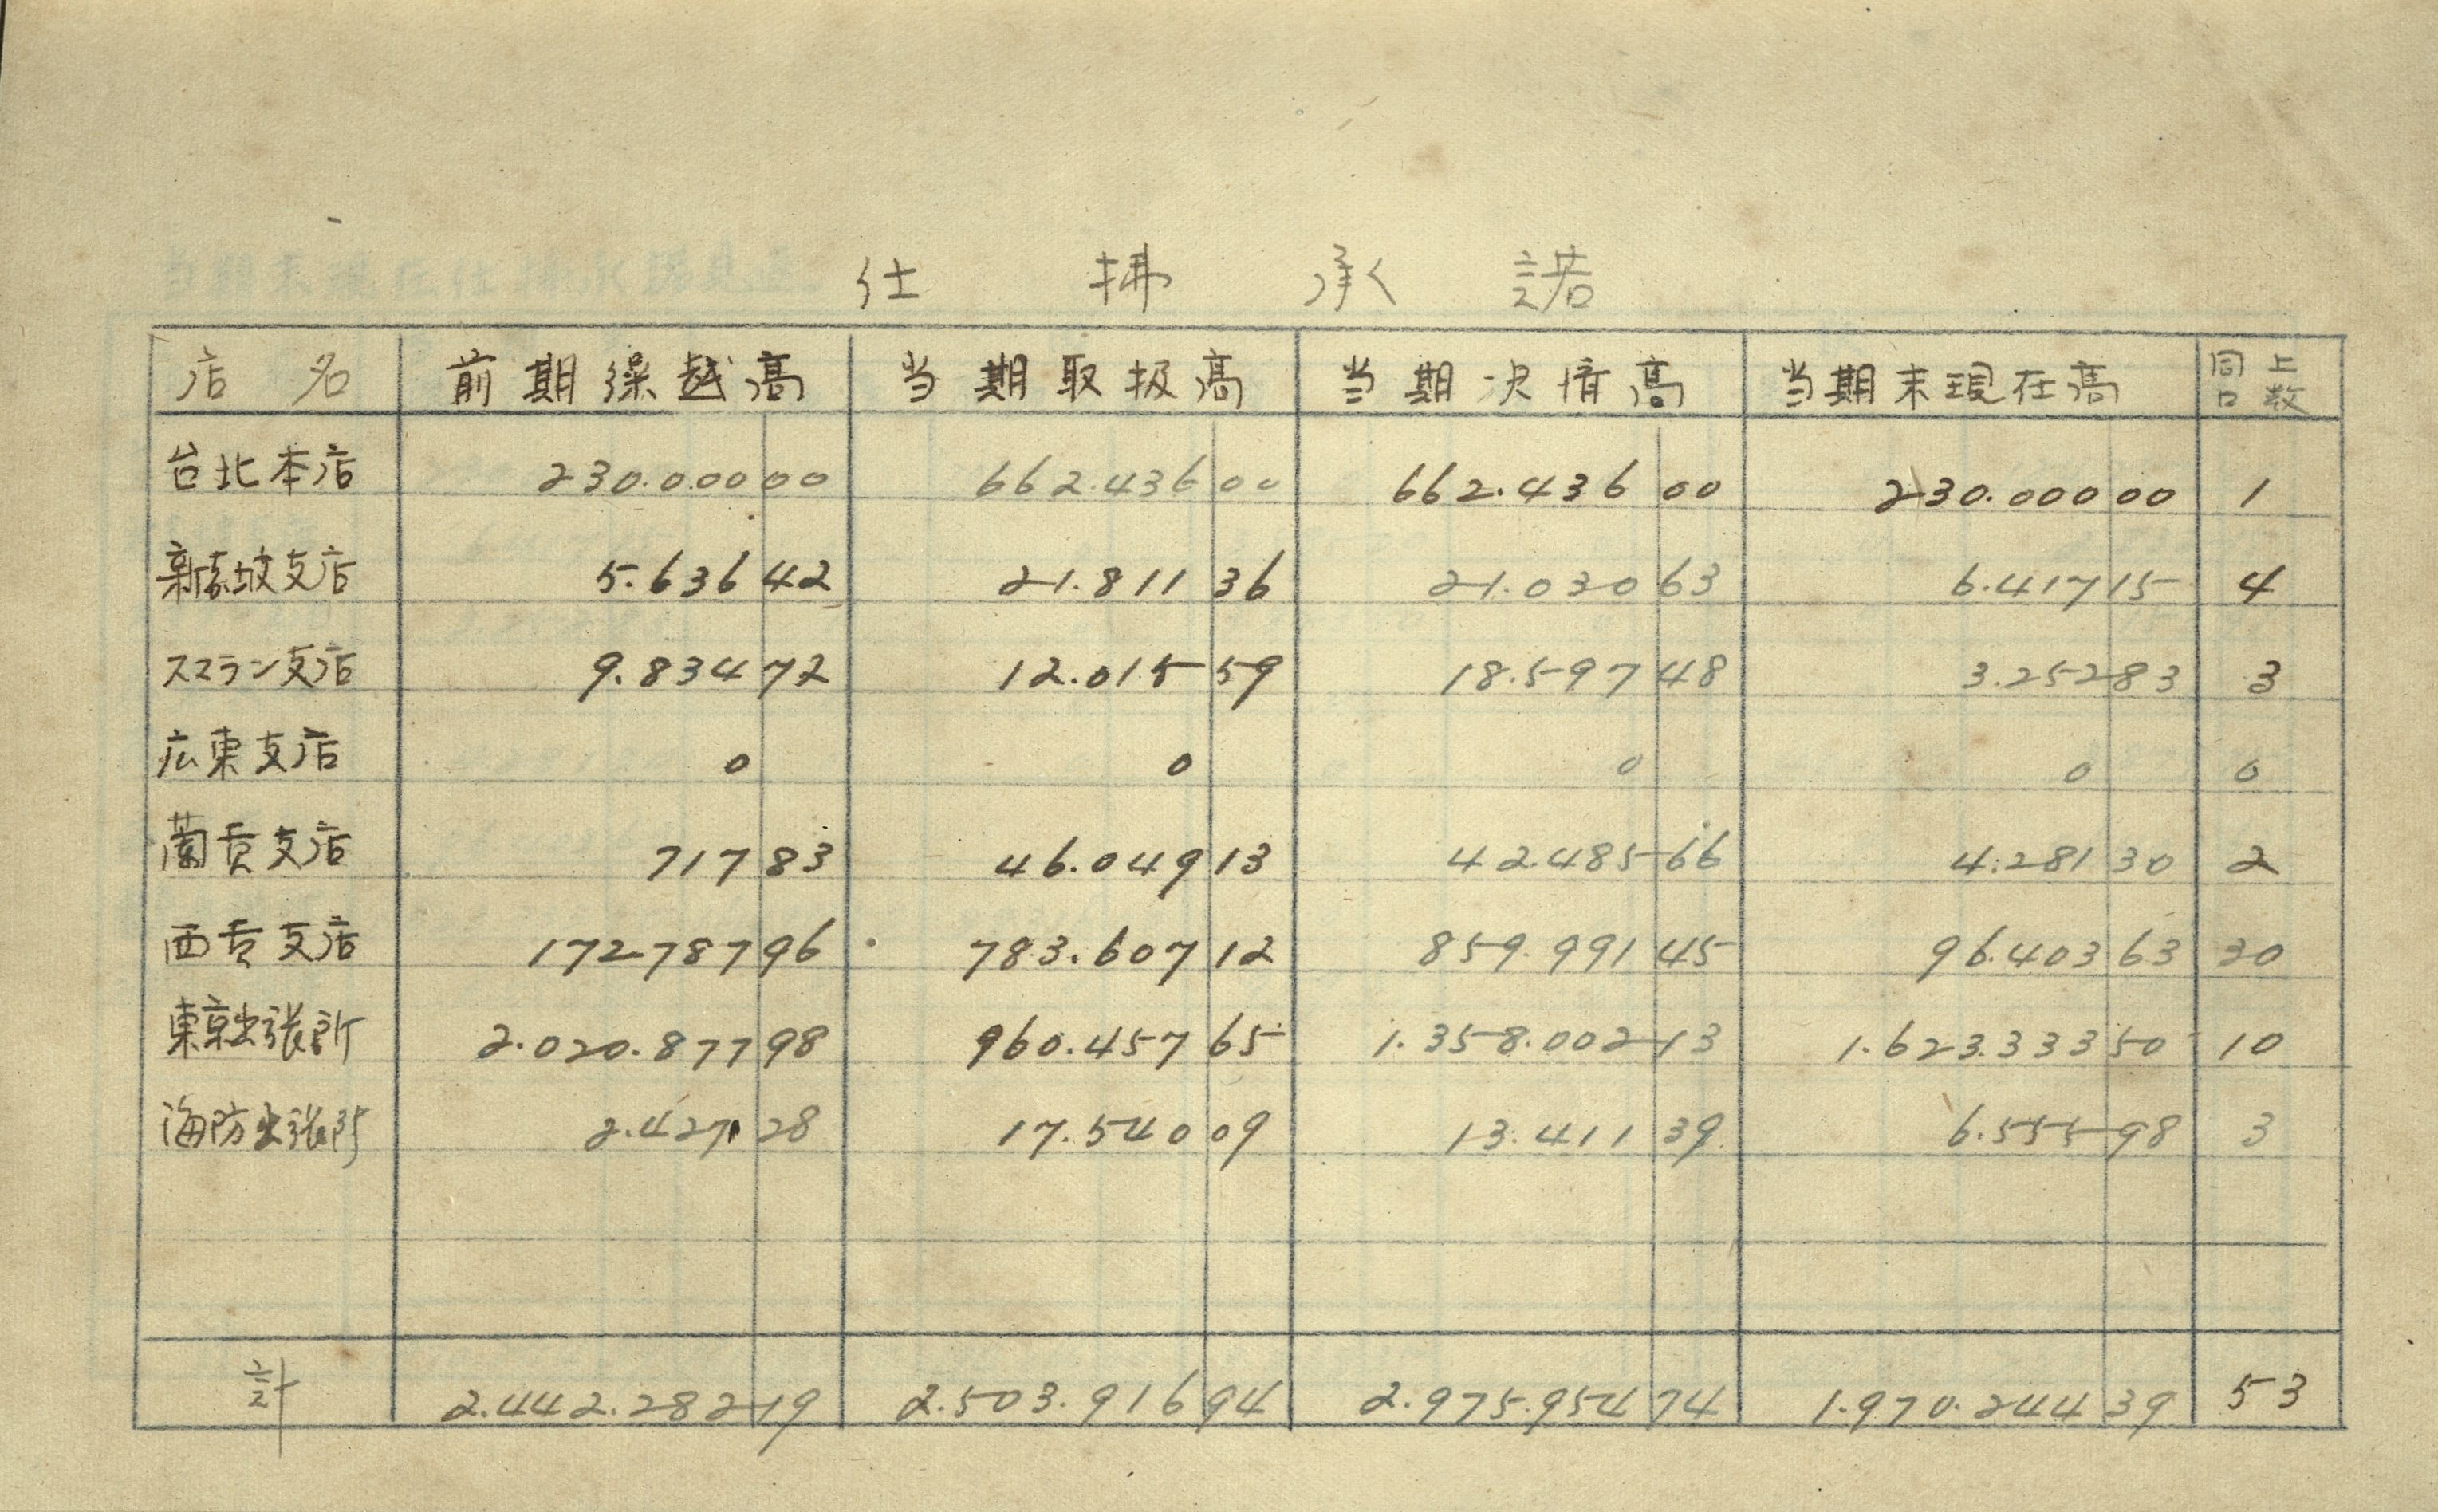 仕拂承諾
店名 前期繰越高 当期取扱高 当期決済高 当期末現在高 同上口数
台北本店 230.000 00 662.436 00 662.436 00 230.000 00 1
新嘉坡支店 5.636 42 21.811 36 21.030 63 6.417 15 4
スマラン支店 9.834 72 12.015 59 18.597 48 3.252 83 3
広東支店 0 0 0 0 0
蘭貢支店 717 83 46.049 13 42.485 66 4.281 30 2
西貢支店 172787 96 783.607 12 859.991 45 96.403 63 30
東京出張所 2.020.877 98 960.457 65 1.358.002 13 1.623.333 50 10
海防出張所 2.427 28 17.540 09 13.411 39 6.555 98 3
計 2.442.282 19 2.503.916 94 2.975.954 74 1.970.244 39 53